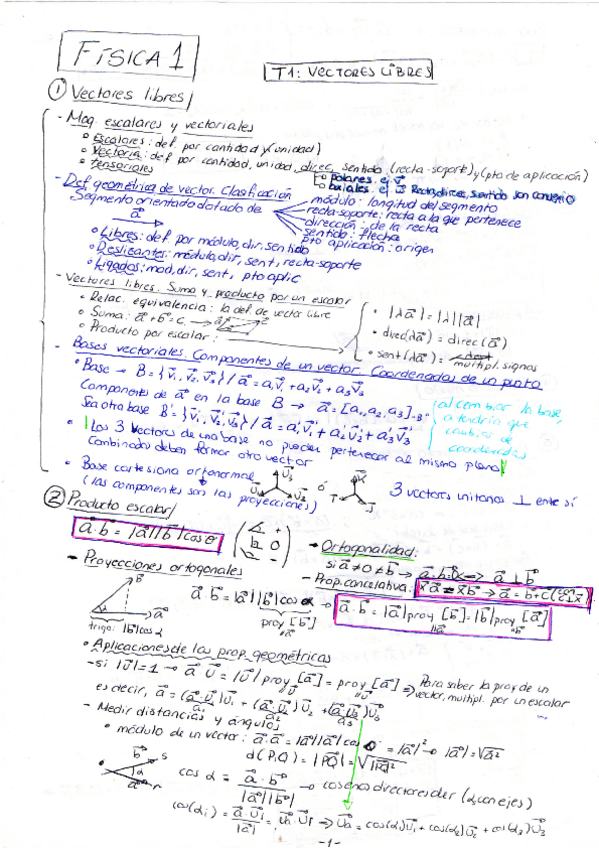 FÍSICA 1
T1: VECTORES LIBRES
① Vectores libres
- Mag. escalares y vectoriales
• Escalares: def. por cantidad y (unidad)
• Vectoria: def. por cantidad, unidad, direc, sentido, (recta-soporte) y (pto de aplicación)
• tensoriales
polares
axiales
sentido son convenio
- Def geométrica de vector. Clasificación
Segmento orientado dotado de
módulo: longitud del segmento
recta-soporte: recta a la que pertenece
dirección: de la recta
sentido: flecha
pto aplicación: origen
a⃗
• Libres: def. por módulo, dir, sentido
• Deslizantes: módulo, dir, sent, recta-soporte
• Ligados: mod, dir, sent, pto aplic
- Vectores libres. Suma y producto por un escalar
• Relac. equivalencia: la def. de vector libre
• Suma: a⃗ + b⃗ = c⃗
• Producto por escalar:
• |λa⃗| = |λ||a⃗|
• direc(λa⃗) = direc(a⃗)
• sent(λa⃗) = multipl. signos
- Bases vectoriales. Componentes de un vector. Coordenadas de un punto
• Base → B = {v⃗₁, v⃗₂, v⃗₃} / a⃗ = a₁v⃗₁ + a₂v⃗₂ + a₃v⃗₃
Componentes de a⃗ en la base B → a⃗ = [a₁, a₂, a₃]B
Sea otra base B' = {v⃗'₁, v⃗'₂, v⃗'₃} / a⃗ = a'₁v⃗'₁ + a'₂v⃗'₂ + a'₃v⃗'₃
al cambiar la base,
que
cambiar de
coordenadas
• Los 3 vectores de una base no pueden pertenecer al mismo plano
Combinados deben formar otro vector
• Base cartesiana ortonormal
(las componentes son las proyecciones)
ó
3 vectores unitarios ⊥ entre sí
② Producto escalar
a⃗·b⃗ = |a⃗||b⃗|cosθ
- Ortogonalidad:
si a⃗ ≠ 0 ≠ b⃗ → a⃗·b⃗ = 0 <=> a⃗ ⊥ b⃗
- Prop. cancelativa:
- Proyecciones ortogonales
b⃗
a⃗
trigo: |b⃗|cosα
a⃗·b⃗ = |a⃗||b⃗|cosα →
proy [b⃗]
a⃗·b⃗ = |a⃗|proy[b⃗] = |b⃗|proy[a⃗]
• Aplicaciones de las prop. geométricas
- si |u⃗| = 1 → a⃗·u⃗ = |u⃗|proy[a⃗] = proy[a⃗] ⇒ Para saber la proy de un
vector, multipl. por un escalar
es decir, a⃗ = (a⃗·u⃗₁)u⃗₁ + (a⃗·u⃗₂)u⃗₂ + (a⃗·u⃗₃)u⃗₃
a₁ a₂ a₃
- Medir distancias y ángulos
• módulo de un vector: a⃗·a⃗ = |a⃗||a⃗|cos 0 = |a⃗|² → |a⃗| = √a⃗²
d(P,Q) = |PQ⃗| = √PQ⃗²
b⃗ s
α
a⃗ r
cos α = a⃗·b⃗ / |a⃗||b⃗| → cosenos directores der (α, con ejes)
cos(αᵢ) = a⃗·u⃗ᵢ / |a⃗| = u⃗ₐ·u⃗ᵢ ⇒ u⃗ₐ = cos(α₁)u⃗₁ + cos(α₂)u⃗₂ + cos(α₃)u⃗₃
-1-